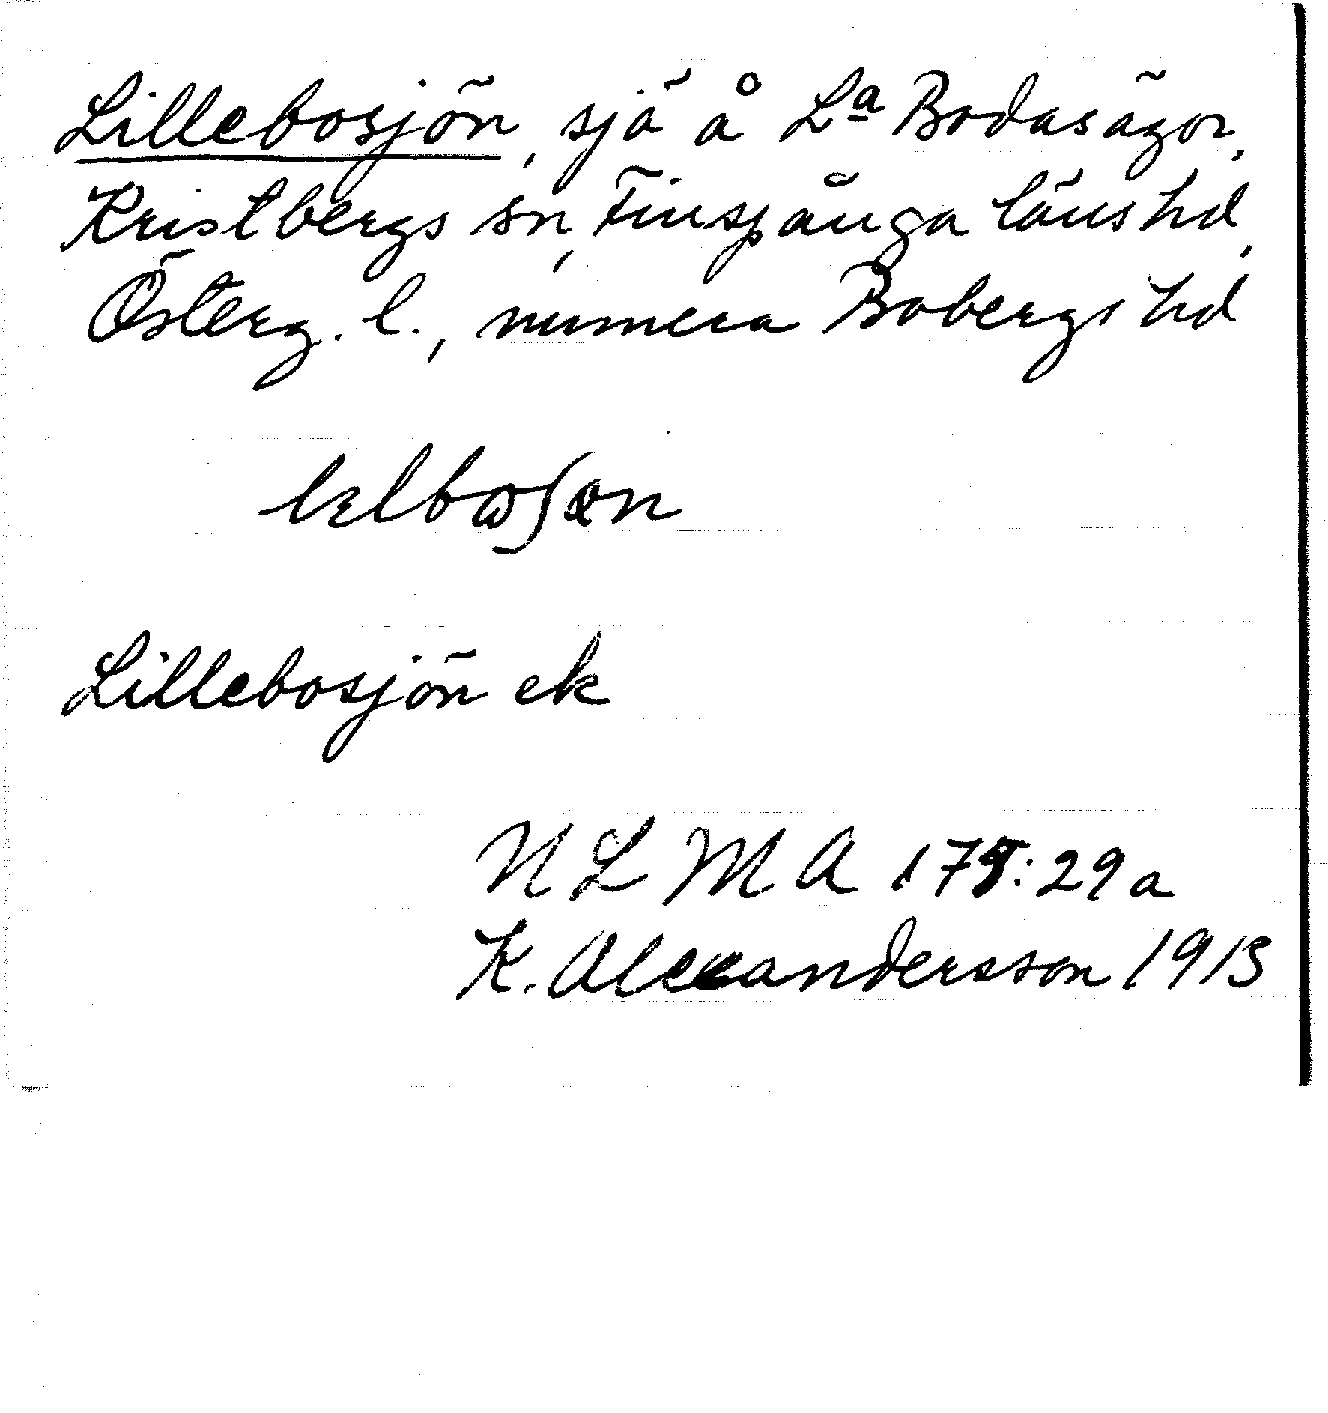 Lillebosjön, sjö å La Bodas ägor,
Kristbergs sn, Finspånga läns hd,
Österg. l., numera Bobergs hd
Lillebosjön ek
NLMA 175:29a
K. Alexandersson 1913